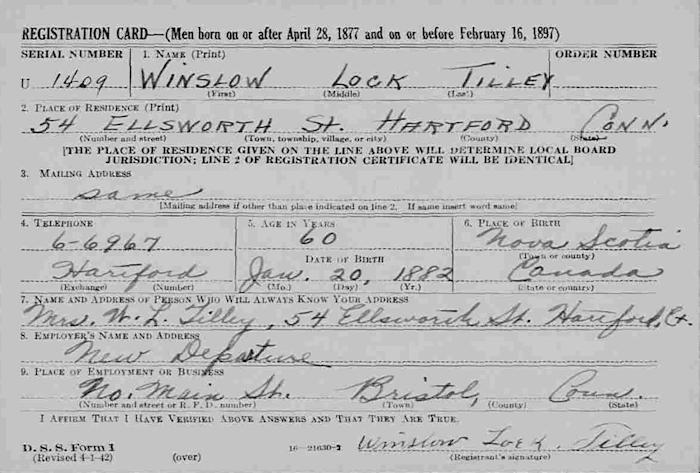 REGISTRATION CARD—(Men born on or after April 28, 1877 and on or before February 16, 1897)
SERIAL NUMBER 1. NAME (Print) ORDER NUMBER
U 1409 WINSLOW LOCK TILLEY
(First) (Middle) (Last)
2. PLACE OF RESIDENCE (Print)
54 ELLSWORTH St. HARTFORD CONN.
(Number and street) (Town, township, village, or city) (County) (State)
[THE PLACE OF RESIDENCE GIVEN ON THE LINE ABOVE WILL DETERMINE LOCAL BOARD
JURISDICTION; LINE 2 OF REGISTRATION CERTIFICATE WILL BE IDENTICAL]
3. MAILING ADDRESS
same
[Mailing address if other than place indicated on line 2. If same insert word same]
4. TELEPHONE 5. AGE IN YEARS 6. PLACE OF BIRTH
6-6967 60 Nova Scotia
DATE OF BIRTH (Town or county)
Hartford Jan. 20, 1882 Canada
(Exchange) (Number) (Mo.) (Day) (Yr.) (State or country)
7. NAME AND ADDRESS OF PERSON WHO WILL ALWAYS KNOW YOUR ADDRESS
Mrs. W. L. Tilley, 54 Ellsworth St. Hartford, Ct.
8. EMPLOYER'S NAME AND ADDRESS
New Departure
9. PLACE OF EMPLOYMENT OR BUSINESS
No. Main St. Bristol, Conn.
(Number and street or R. F. D. number) (Town) (County) (State)
I AFFIRM THAT I HAVE VERIFIED ABOVE ANSWERS AND THAT THEY ARE TRUE.
D. S. S. Form 1 16—21630-2 Winslow Lock Tilley
(Revised 4-1-42) (over) (Registrant's signature)